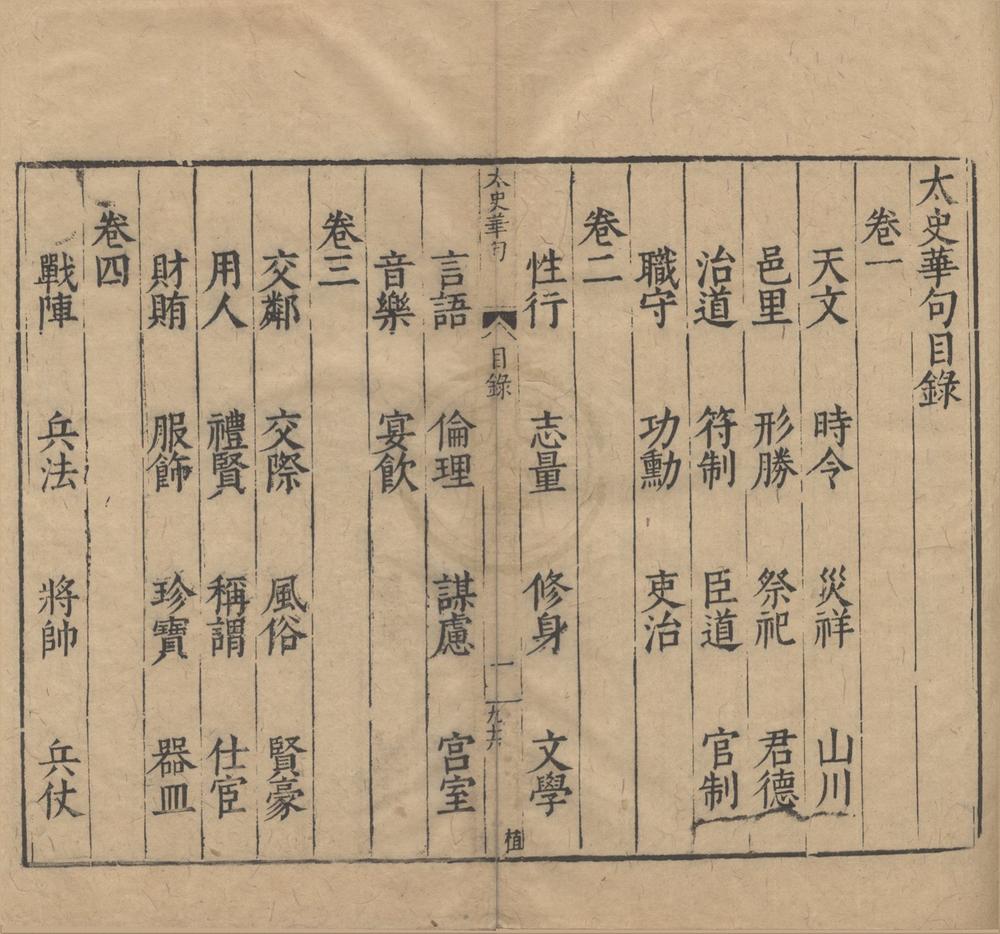 太史華句目錄
卷一
天文 時令 災祥 山川
邑里 形勝 祭祀 君德
治道 符制 臣道 官制
職守 功勳 吏治
卷二
性行 志量 修身 文學
太史華句 目錄 一 植
言語 倫理 謀慮 宮室
音樂 宴飲
卷三
交鄰 交際 風俗 賢豪
用人 禮賢 稱謂 仕宦
財賄 服飾 珍寶 器皿
卷四
戰陣 兵法 將帥 兵仗